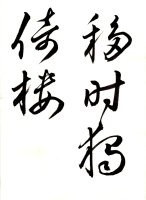 移时独
倚楼